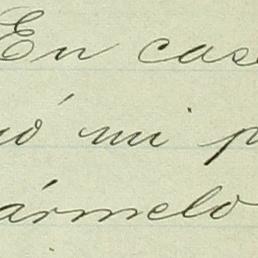 En cas
ió mi p
ármelo